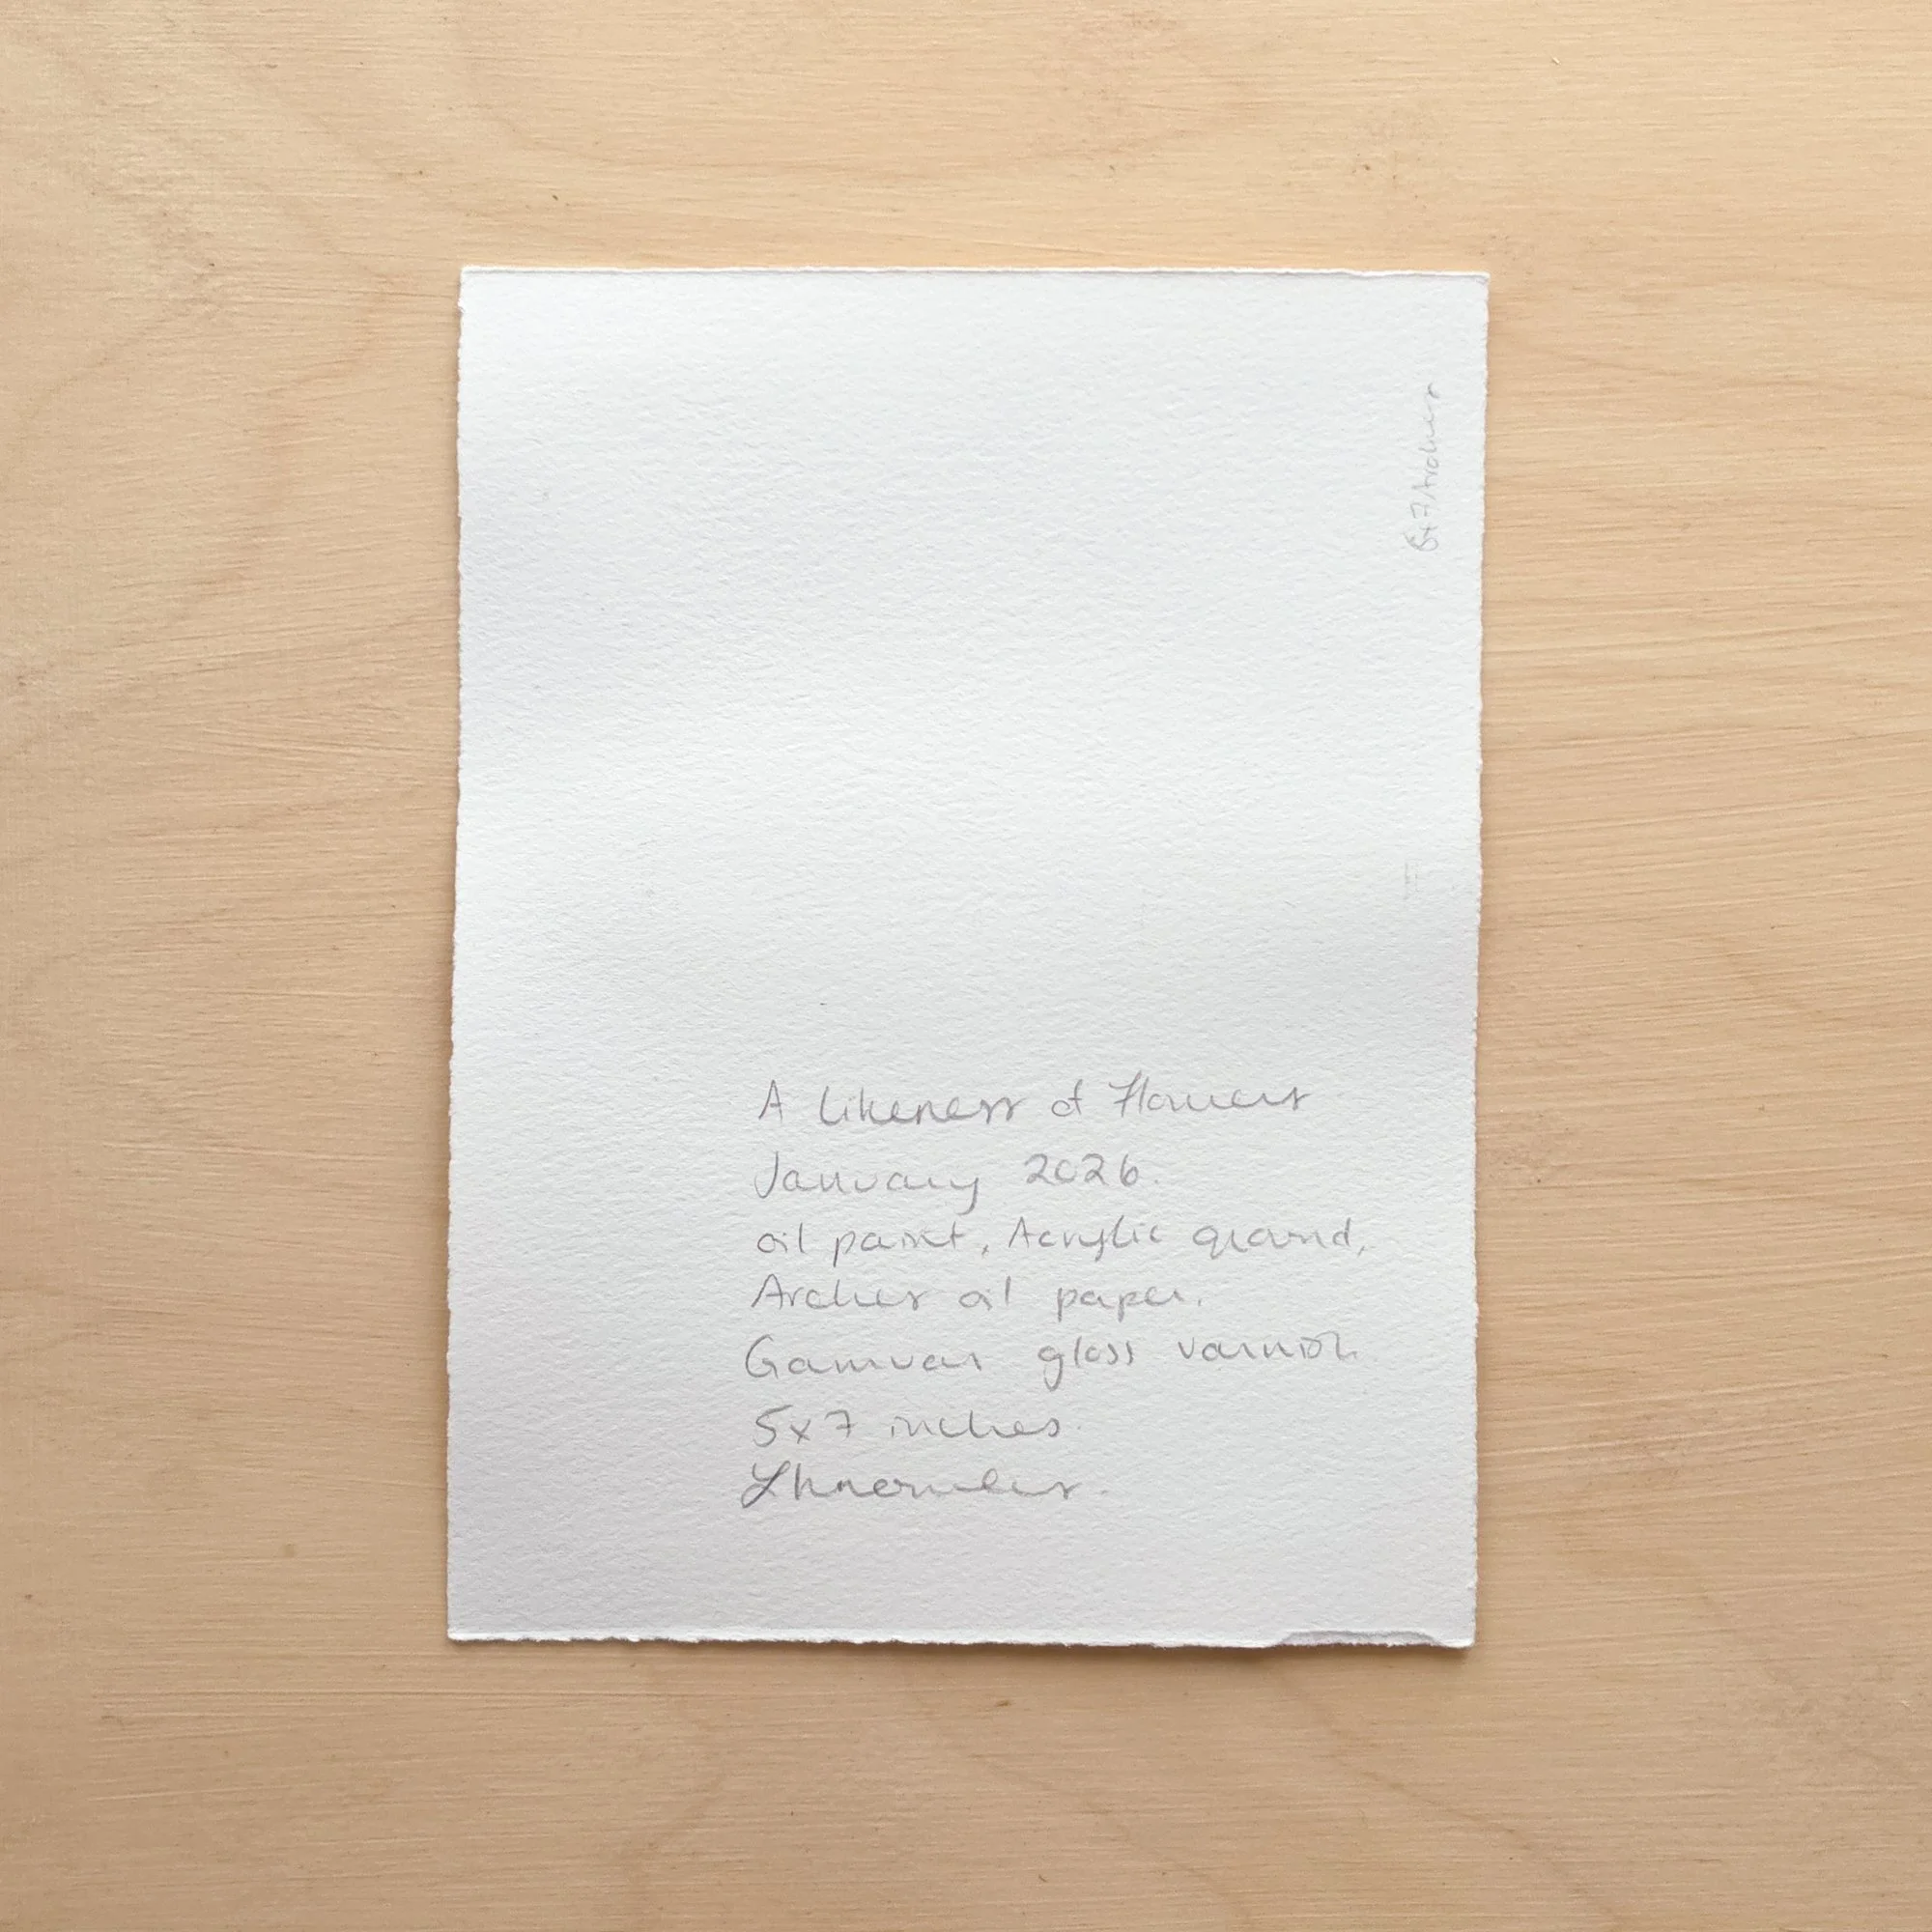 5x7 Arches
A likeness of Flowers
January 2026.
oil paint, Acrylic ground,
Arches oil paper.
Gamvar gloss varnish
5x7 inches.